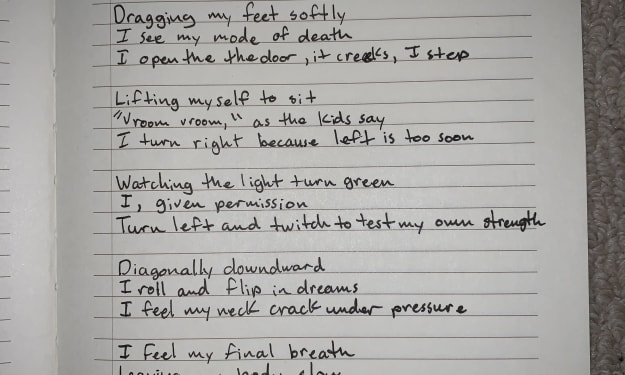 Dragging my feet softly
I see my mode of death
I open the the door, it creeks, I step
Lifting myself to sit
"Vroom vroom," as the kids say
I turn right because left is too soon
Watching the light turn green
I, given permission
Turn left and twitch to test my own strength
Diagonally downdward
I roll and flip in dreams
I feel my neck crack under pressure
I feel my final breath